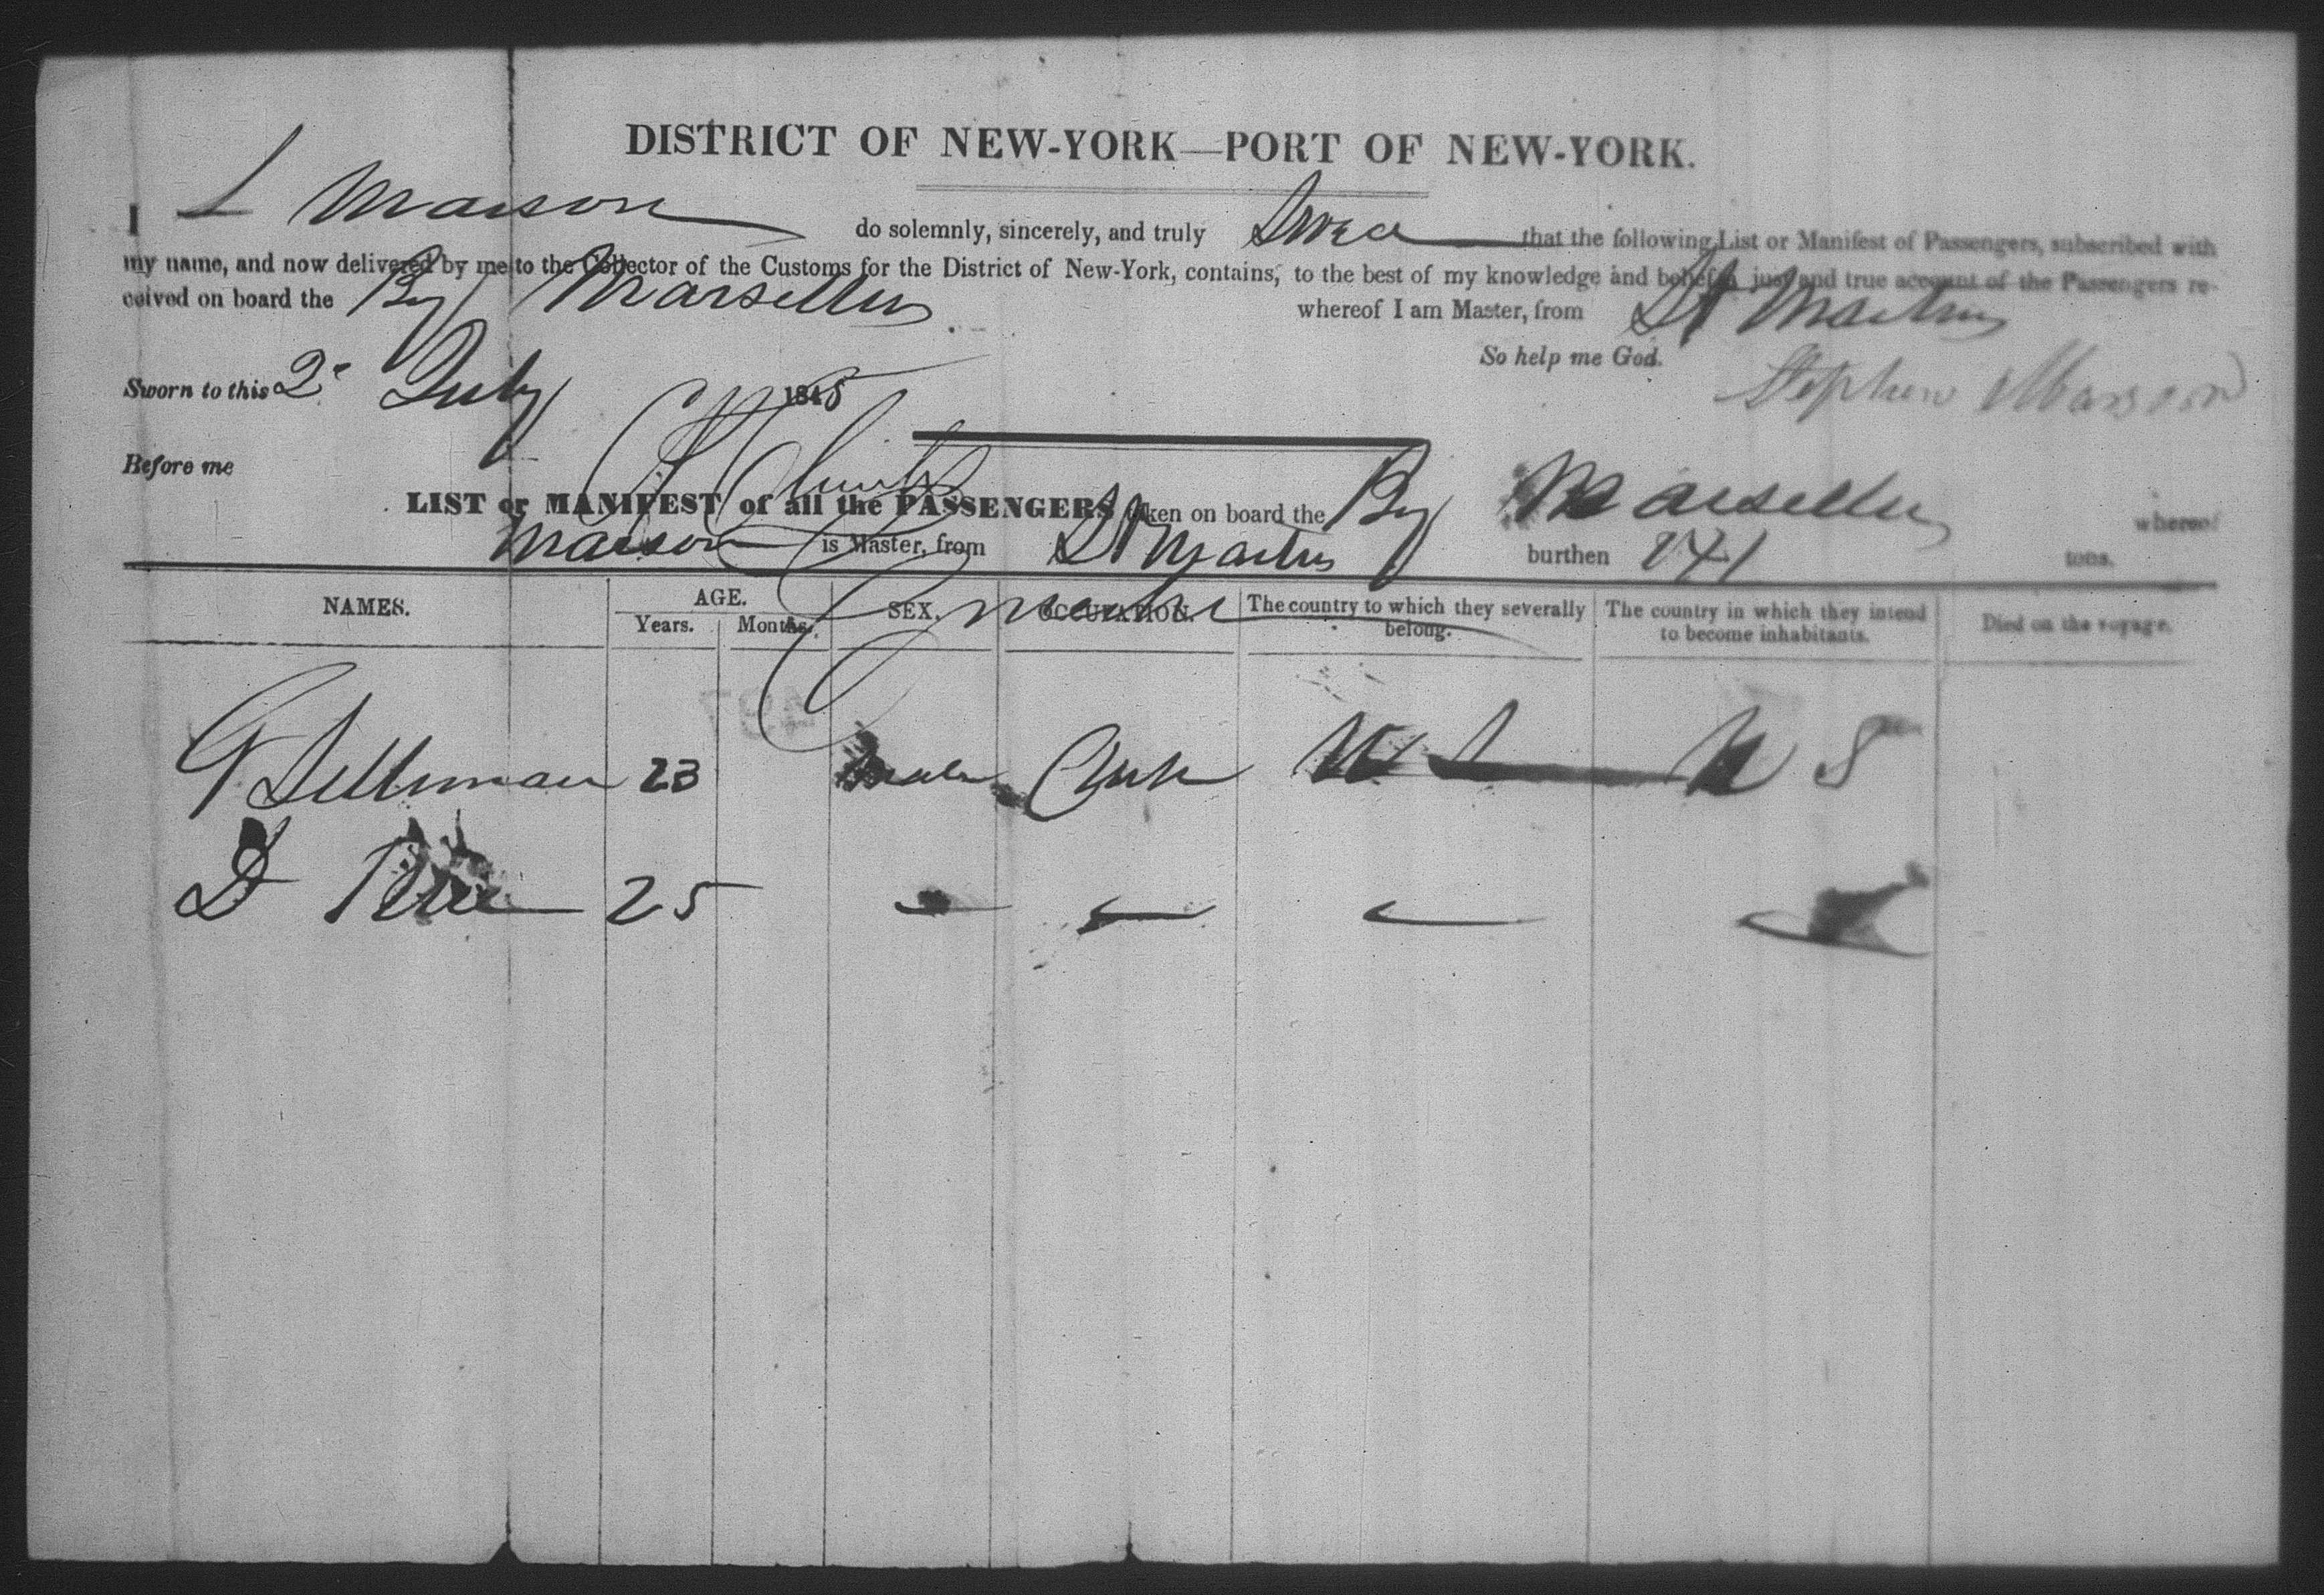 DISTRICT OF NEW-YORK—PORT OF NEW-YORK.
I S Marson do solemnly, sincerely, and truly Swear that the following List or Manifest of Passengers, subscribed with
my name, and now delivered by me to the Collector of the Customs for the District of New-York, contains, to the best of my knowledge and belief, a just and true account of the Passengers re-
ceived on board the Brig Marsellus whereof I am Master, from St Martins
So help me God.
Sworn to this 2d July 1845
Stephen Marson
Before me
LIST or MANIFEST of all the PASSENGERS taken on board the Brig Marsellus whereof
Marson is Master, from St Martins burthen 141 tons.
NAMES. AGE. SEX. OCCUPATION. The country to which they severally belong. The country in which they intend to become inhabitants. Died on the voyage.
Years. Months.
G 23 Male Clerk W I U S
D 25